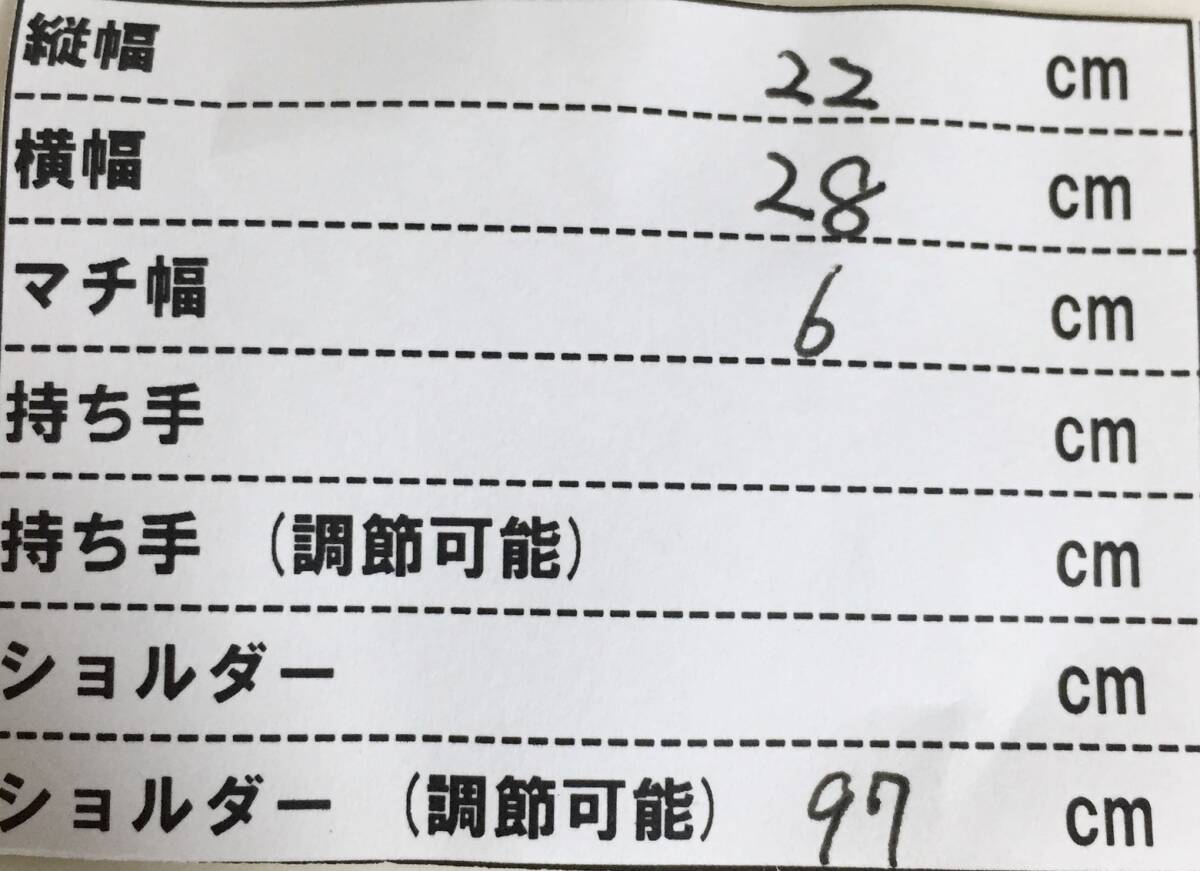 縦幅 22 cm
横幅 28 cm
マチ幅 6 cm
持ち手 cm
持ち手 (調節可能) cm
ショルダー cm
ショルダー (調節可能) 97 cm